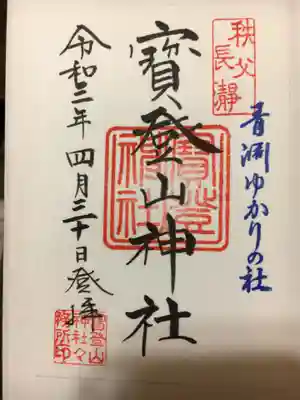 秩父
長瀞
青淵ゆかりの社
寶登山神社
寶登山
神社
令和三年四月三十日登拝
寶登山
神社々
務所印